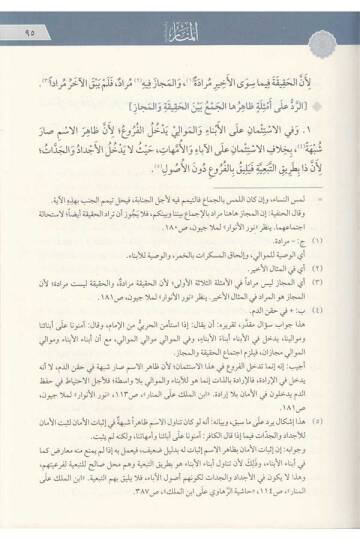 المنار
٩٥
لِأَنَّ الحَقِيقَةَ فِيما سِوَى الأَخِيرِ مُرادَةٌ(١)، وَالمَجازَ فِيهِ(٢) مُرادٌ، فَلَمْ يَبْقَ الآخَرُ مُراداً(٣).
[الرَّدُّ عَلَى أَمْثِلَةٍ ظاهِرُها الجَمْعُ بَيْنَ الحَقِيقَةِ وَالمَجازِ]
١. وَفِي الاسْتِئْمانِ عَلَى الأَبْناءِ وَالمَوالِي يَدْخُلُ الفُرُوعُ؛ لِأَنَّ ظاهِرَ الاسْمِ صارَ
شُبْهَةً(٤)، بِخِلافِ الاسْتِئْمانِ عَلَى الآباءِ وَالأُمَّهاتِ، حَيْثُ لا يَدْخُلُ الأَجْدادُ وَالجَدَّاتُ؛
لِأَنَّ ذا بِطَرِيقِ التَّبَعِيَّةِ فَيَلِيقُ بِالفُرُوعِ دُونَ الأُصُولِ(٥).
= لمس النساء، وإن كان اللمس بالجماع فالتيمم فيه لأجل الجنابة، فيحل تيمم الجنب بهذه الآية.
وقال الحنفية: إن المجاز هاهنا مراد بالإجماع بيننا وبينكم، فلا يجوز أن تراد الحقيقة أيضاً لاستحالة
اجتماعهما. ينظر «نور الأنوار» لملا جيون، ص١٨٠.
(١) ج: - مرادة.
أي الوصية للموالي، وإلحاق المسكرات بالخمر، والوصية للأبناء.
(٢) أي في المثال الأخير.
(٣) أي المجاز ليس مراداً في الأمثلة الثلاثة الأولى؛ لأن الحقيقة مرادة، والحقيقة ليست مرادة؛ لأن
المجاز هو المراد في المثال الأخير. ينظر «نور الأنوار» لملا جيون، ص١٨١.
(٤) ب: + في حقن الدم.
هذا جواب سؤال مقدَّر، تقريره: أن يقال: إذا استأمن الحربيُّ من الإمام، وقال: آمنونا على أبنائنا
وموالينا، يدخل في الأبناء أبناءُ الأبناء، وفي الموالي موالي الموالي، مع أن أبناء الأبناء وموالي
الموالي مجازان، فيلزم اجتماع الحقيقة والمجاز.
أجيب: إنه إنما تدخل الفروع في هذا الاستئمان؛ لأن ظاهر الاسم صار شبهة في حقن الدم، لا أنه
يدخل في الإرادة، فالإرادة بالذات إنما هو للأبناء والموالي بلا واسطة؛ فلأجل الاحتياط في حفظ
الدم يدخلون في الأمان بلا إرادة. «ابن الملك على المنار»، ص١١٣، «نور الأنوار» لملا جيون،
ص١٨١.
(٥) هذا إشكال يرد على ما سبق، وبيانه: أنه لو كان تناول الاسم ظاهراً شبهةً في إثبات الأمان لثبت الأمان
للأجداد والجدّات فيما إذا قال الكافر: آمنونا على آبائنا وأمهاتنا، ولكنه لم يثبت.
وجوابه: إن إثبات الأمان بظاهر الاسم إثبات له بدليل ضعيف، فيعمل به إذا لم يمنع منه معارض كما
في أبناء الأبناء، وذلك لأن تناول أبناء الأبناء هو بطريق التبعية وهم محل صالح للتبعية لفرعيتهم،
وهذا لا يكون في الأجداد والجدات لكونهم أصول الآباء، فلا يليق بهم التبعية. «ابن الملك على
المنار»، ص١١٤، «حاشية الرُّهاوي على ابن الملك»، ص٣٨٧.